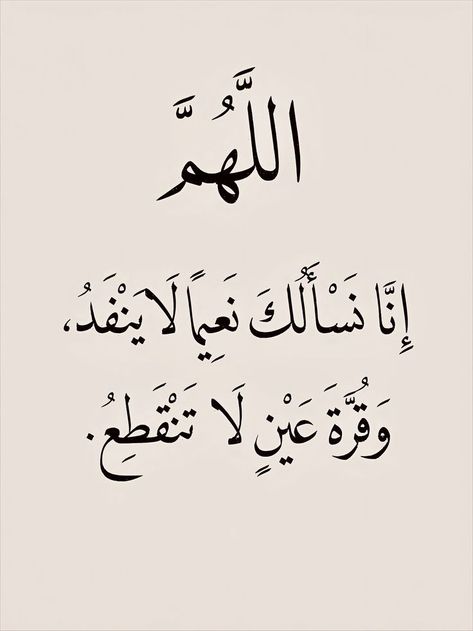 اللَّهُمَّ
إِنَّا نَسْأَلُكَ نَعِيمًا لَا يَنْفَدُ،
وَقُرَّةَ عَيْنٍ لَا تَنْقَطِعُ.